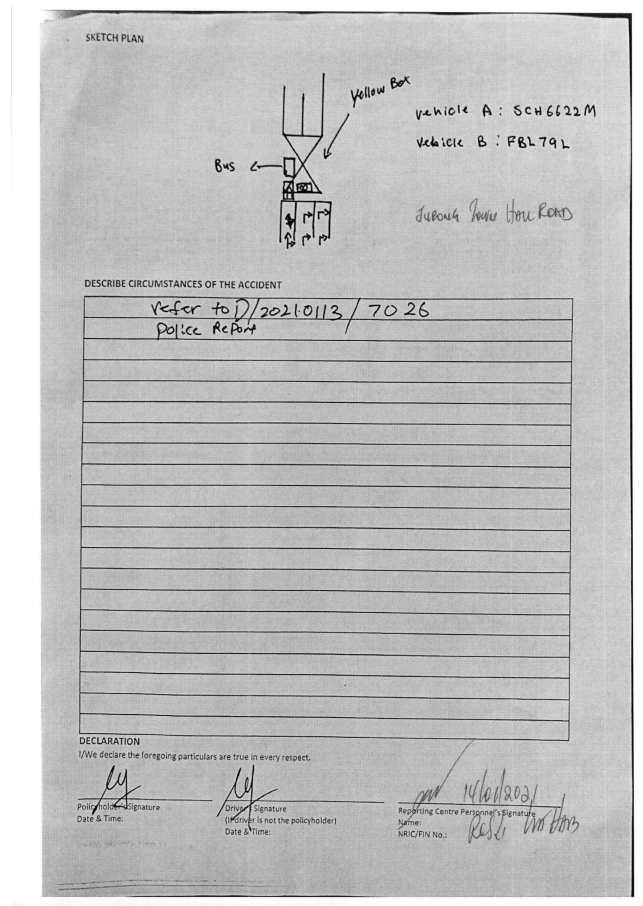 SKETCH PLAN
Yellow Box
vehicle A : SCH6622M
vehicle B : FBL79L
Bus
JURONG TOWN HALL ROAD
DESCRIBE CIRCUMSTANCES OF THE ACCIDENT
refer to D/20210113/7026
police Report
DECLARATION
I/We declare the foregoing particulars are true in every respect.
14/01/2021
Policyholder's Signature
Date & Time:
Driver's Signature
(If driver is not the policyholder)
Date & Time:
Reporting Centre Personnel's Signature
Name:
NRIC/FIN No.: